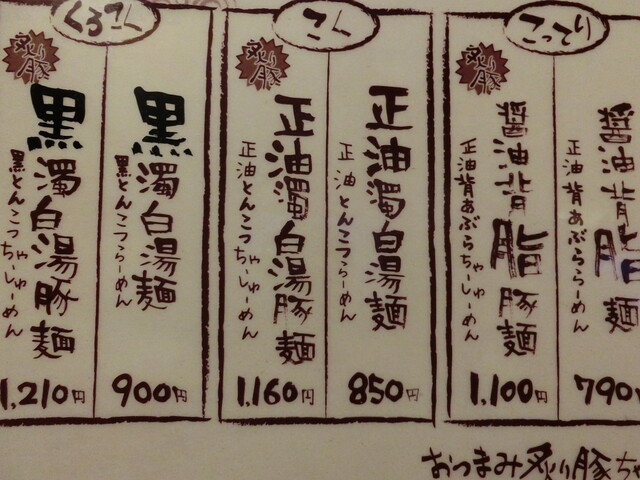 こってり
醤油背脂麺
正油背あぶららーめん
790円
炙り豚
醤油背脂豚麺
正油背あぶらちゃーしゅーめん
1,100円
こく
正油濁白湯麺
正油とんこつらーめん
850円
炙り豚
正油濁白湯豚麺
正油とんこつちゃーしゅーめん
1,160円
くろこく
黒濁白湯麺
黒とんこつらーめん
900円
炙り豚
黒濁白湯豚麺
黒とんこつちゃーしゅーめん
1,210円
おつまみ炙り豚ちゃ